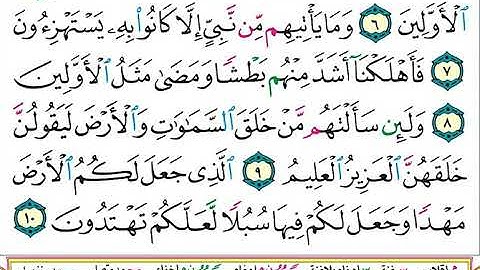 ٱلْأَوَّلِينَ ٦ وَمَا يَأْتِيهِم مِّن نَّبِيٍّ إِلَّا كَانُوا۟ بِهِۦ يَسْتَهْزِءُونَ
٧ فَأَهْلَكْنَآ أَشَدَّ مِنْهُم بَطْشًا وَمَضَىٰ مَثَلُ ٱلْأَوَّلِينَ
٨ وَلَئِن سَأَلْتَهُم مَّنْ خَلَقَ ٱلسَّمَٰوَٰتِ وَٱلْأَرْضَ لَيَقُولُنَّ
خَلَقَهُنَّ ٱلْعَزِيزُ ٱلْعَلِيمُ ٩ ٱلَّذِى جَعَلَ لَكُمُ ٱلْأَرْضَ
مَهْدًا وَجَعَلَ لَكُمْ فِيهَا سُبُلًا لَّعَلَّكُمْ تَهْتَدُونَ ١٠